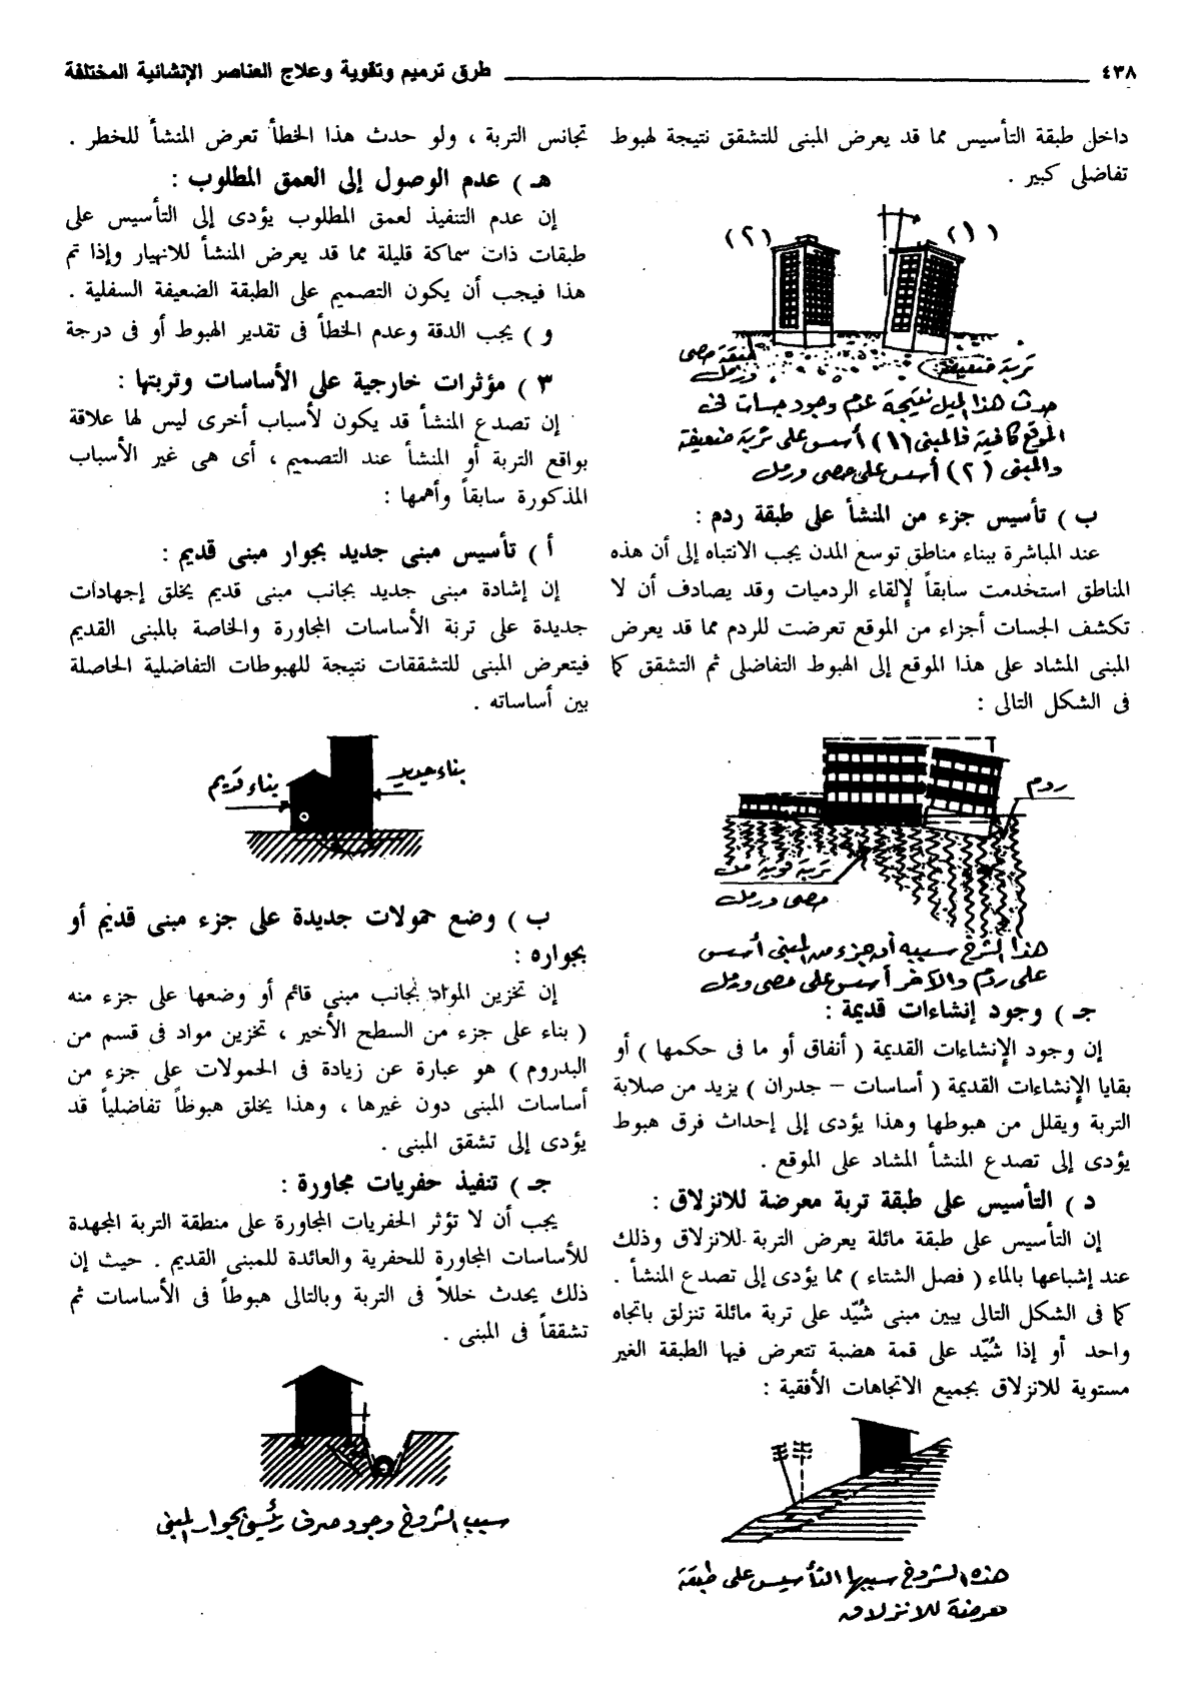 ٤٣٨ طرق ترميم وتقوية وعلاج العناصر الإنشائية المختلفة
داخل طبقة التأسيس مما قد يعرض المبنى للتشقق نتيجة لهبوط
تفاضلى كبير .
(١)
(٢)
تربة ضعيفة
منطقة حصى
ورمل
حدث هذا الميل نتيجة عدم وجود جسات فى
الموقع كافية فالمبنى (١) أسس على تربة ضعيفة
والمبنى (٢) أسس على حصى ورمل
ب ) تأسيس جزء من المنشأ على طبقة ردم :
عند المباشرة ببناء مناطق توسع المدن يجب الانتباه إلى أن هذه
المناطق استخدمت سابقاً لإلقاء الردميات وقد يصادف أن لا
تكشف الجسات أجزاء من الموقع تعرضت للردم مما قد يعرض
المبنى المشاد على هذا الموقع إلى الهبوط التفاضلى ثم التشقق كما
فى الشكل التالى :
ردم
تربة قوية من
حصى ورمل
هذا الشرخ سببه أن جزء من المبنى أسس
على ردم والآخر أسس على حصى ورمل
جـ ) وجود إنشاءات قديمة :
إن وجود الإنشاءات القديمة ( أنفاق أو ما فى حكمها ) أو
بقايا الإنشاءات القديمة ( أساسات – جدران ) يزيد من صلابة
التربة ويقلل من هبوطها وهذا يؤدى إلى إحداث فرق هبوط
يؤدى إلى تصدع المنشأ المشاد على الموقع .
د ) التأسيس على طبقة تربة معرضة للانزلاق :
إن التأسيس على طبقة مائلة يعرض التربة للانزلاق وذلك
عند إشباعها بالماء ( فصل الشتاء ) مما يؤدى إلى تصدع المنشأ .
كما فى الشكل التالى يبين مبنى شُيّد على تربة مائلة تنزلق باتجاه
واحد أو إذا شُيّد على قمة هضبة تتعرض فيها الطبقة الغير
مستوية للانزلاق بجميع الاتجاهات الأفقية :
هذه الشروخ سببها التأسيس على طبقة
معرضة للانزلاق
تجانس التربة ، ولو حدث هذا الخطأ تعرض المنشأ للخطر .
هـ ) عدم الوصول إلى العمق المطلوب :
إن عدم التنفيذ لعمق المطلوب يؤدى إلى التأسيس على
طبقات ذات سماكة قليلة مما قد يعرض المنشأ للانهيار وإذا تم
هذا فيجب أن يكون التصميم على الطبقة الضعيفة السفلية .
و ) يجب الدقة وعدم الخطأ فى تقدير الهبوط أو فى درجة
٣ ) مؤثرات خارجية على الأساسات وتربتها :
إن تصدع المنشأ قد يكون لأسباب أخرى ليس لها علاقة
بواقع التربة أو المنشأ عند التصميم ، أى هى غير الأسباب
المذكورة سابقاً وأهمها :
أ ) تأسيس مبنى جديد بجوار مبنى قديم :
إن إشادة مبنى جديد بجانب مبنى قديم يخلق إجهادات
جديدة على تربة الأساسات المجاورة والخاصة بالمبنى القديم
فيتعرض المبنى للتشققات نتيجة للهبوطات التفاضلية الحاصلة
بين أساساته .
بناء جديد
بناء قديم
ب ) وضع حمولات جديدة على جزء مبنى قديم أو
بجواره :
إن تخزين المواد بجانب مبنى قائم أو وضعها على جزء منه
( بناء على جزء من السطح الأخير ، تخزين مواد فى قسم من
البدروم ) هو عبارة عن زيادة فى الحمولات على جزء من
أساسات المبنى دون غيرها ، وهذا يخلق هبوطاً تفاضلياً قد
يؤدى إلى تشقق المبنى .
جـ ) تنفيذ حفريات مجاورة :
يجب أن لا تؤثر الحفريات المجاورة على منطقة التربة المجهدة
للأساسات المجاورة للحفرية والعائدة للمبنى القديم . حيث إن
ذلك يحدث خللاً فى التربة وبالتالى هبوطاً فى الأساسات ثم
تشققاً فى المبنى .
سبب الشروخ وجود صرف رئيسى بجوار المبنى